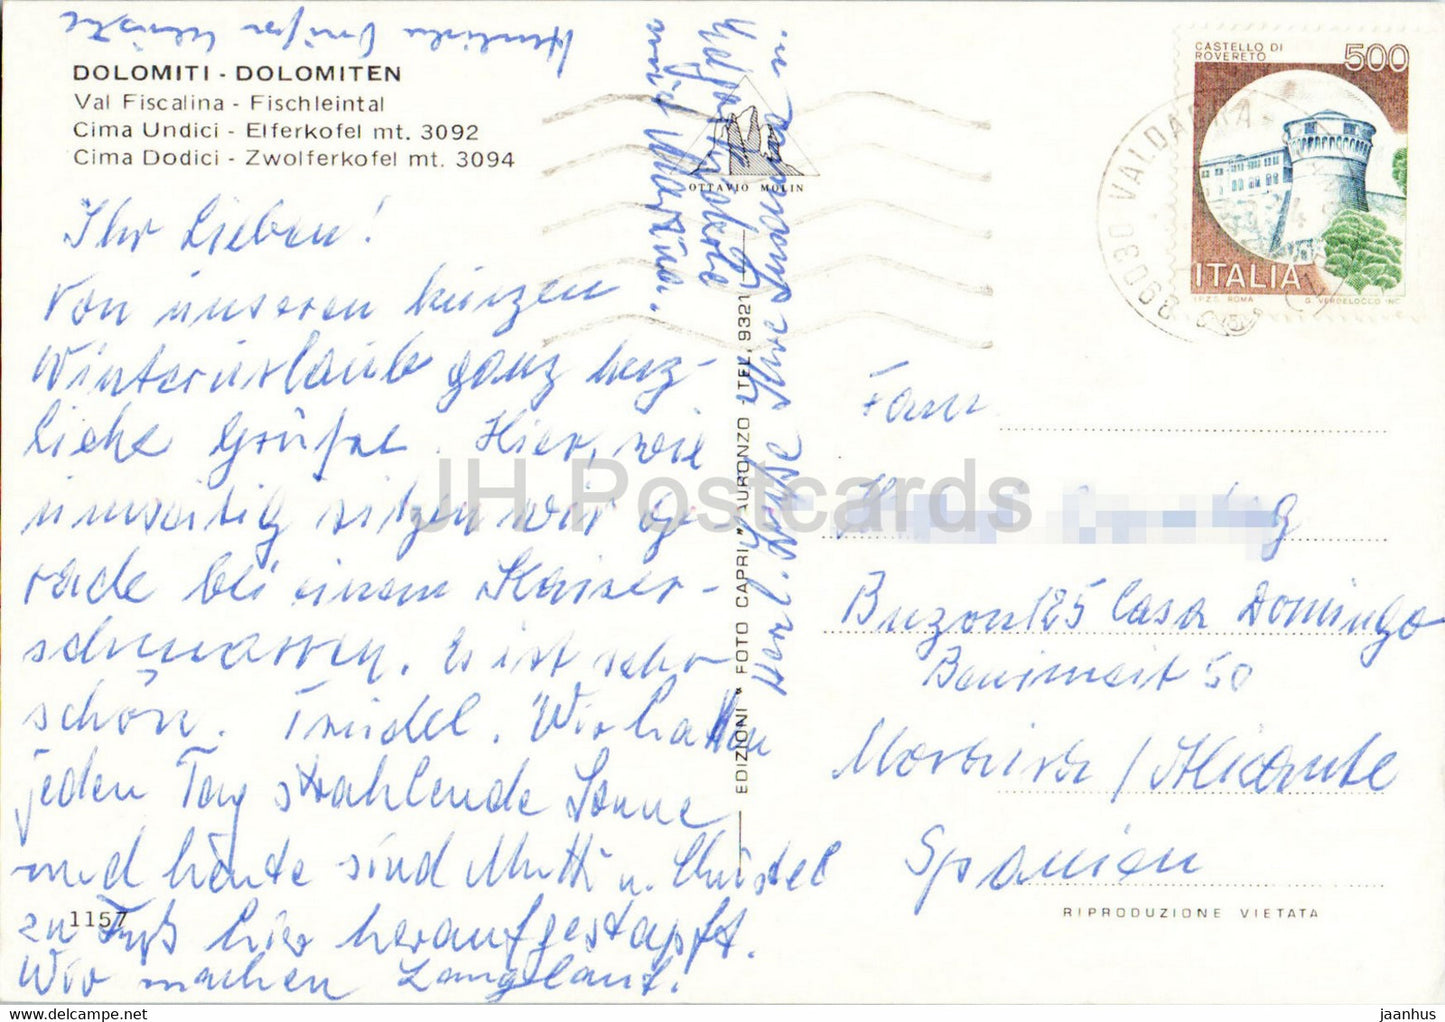 Herzliche Grüße Christl
DOLOMITI - DOLOMITEN
Val Fiscalina - Fischleintal
Cima Undici - Elferkofel mt. 3092
Cima Dodici - Zwolferkofel mt. 3094
Ihr Lieben!
Von unseren kurzen
Winterurlaub ganz herz-
liche Grüße. Hier, wie
unseitig sitzen wir ge-
rade bei einem Kaiser-
schmarren. Es ist sehr
schön. Trudel. Wir hatten
jeden Tag strahlende Sonne
und heute sind Mutti u. Christel
zu Fuß hier heraufgestapft.
Wir machen Langlauf.
1157
Herzl. Grüße Ihre
und Martina.
OTTAVIO MOLIN
EDIZIONI " FOTO CAPRI " AURONZO - TEL. 9321
CASTELLO DI
ROVERETO
500
ITALIA
I.P.Z.S. ROMA
G. VERDELOCCO INC.
VALDAORA
39030
Fam.
Buzon 125 Casa Domingo
Benimeit 50
Moraira / Alicante
Spanien
RIPRODUZIONE VIETATA
JH Postcards
jaanhus